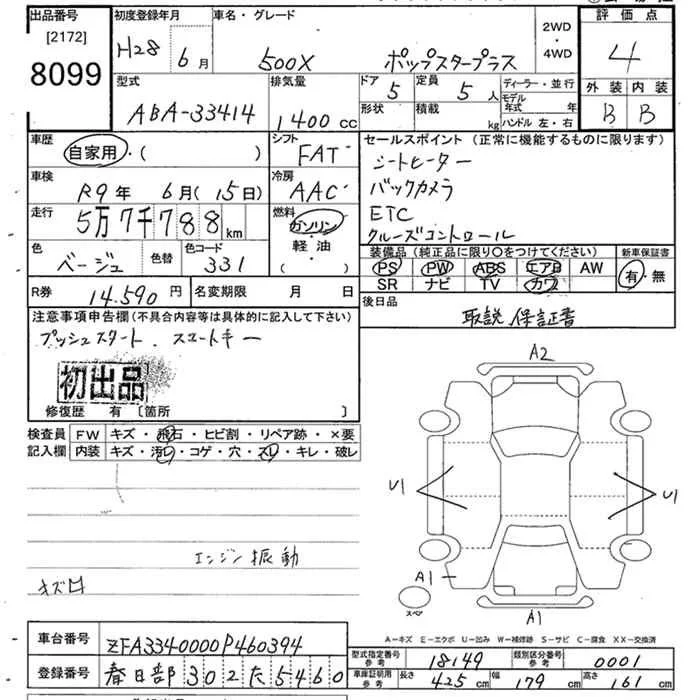 出品番号
[2172]
8099
初度登録年月
H28 6月
車名・グレード
500X ポップスタープラス
2WD
・
4WD
評価点
4
外装 内装
B B
型式
ABA-33414
排気量
1400 CC
ドア 5
定員 5人
形状
積載 kg
ディーラー・並行
モデル年式 年
ハンドル 左・右
車歴
自家用・( )
シフト
FAT
車検
R9年 6月(15日)
冷房
AAC
走行
5万7千788km
燃料
ガソリン
・
軽・油
( ・ )
色
ベージュ
色替
色コード
331
セールスポイント(正常に機能するものに限ります)
シートヒーター
バックカメラ
ETC
クルーズコントロール
装備品(純正品に限り○をつけてください)
PS PW ABS エアB AW
SR ナビ TV カワ
新車保証書
有・無
R券 14.590円
名変期限 月 日
後日品
取説 保証書
注意事項申告欄(不具合内容等は具体的に記入して下さい)
プッシュスタート. スマートキー
初出品
修復歴 有 〔箇所 〕
検査員
記入欄
FW キズ・飛石・ヒビ割・リペア跡・×要
内装 キズ・汚レ・コゲ・穴・スレ・キレ・破レ
エンジン振動
キズ凹
A2
U1
U1
A1
A1
スペア
A−キズ E−エクボ U−凹み W−補修跡 S−サビ C−腐食 XX−交換済
車台番号
ZFA3340000P460394
登録番号
春日部302た5460
型式指定番号
参考
18149
類別区分番号
参考
0001
車庫証明用
参考
長さ 425cm 幅 179cm 高さ 161cm